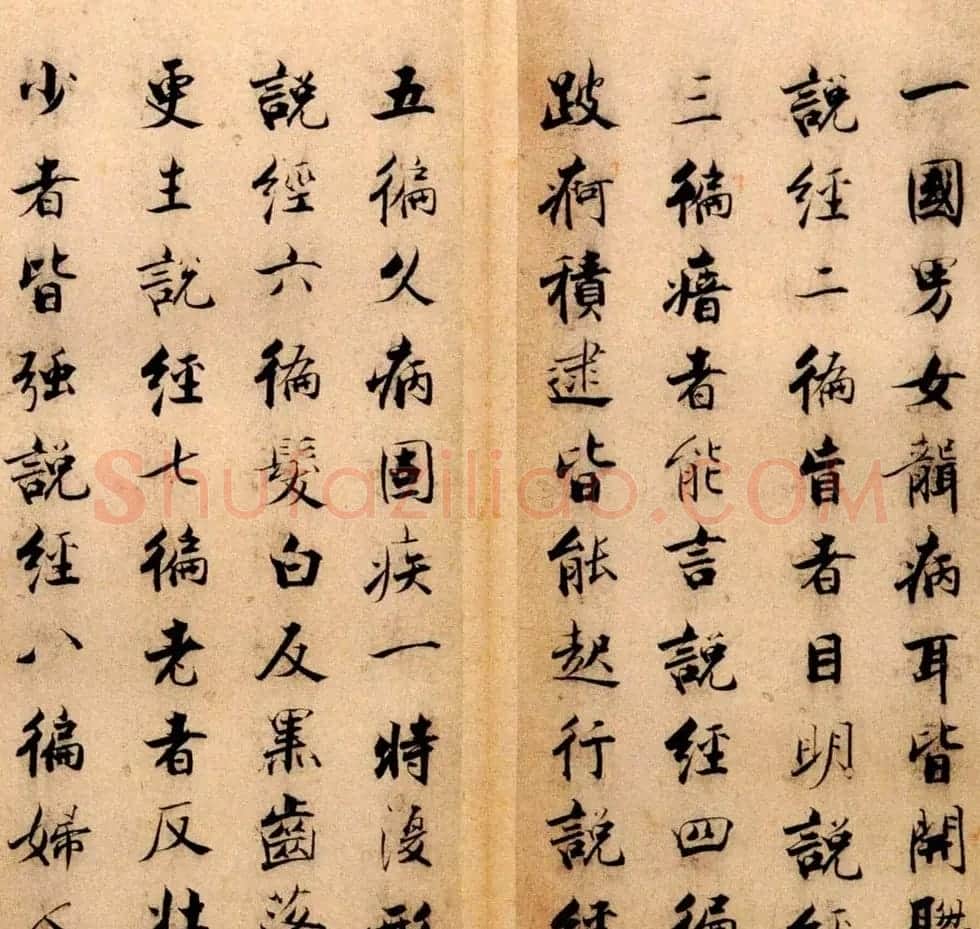 一國男女聾病耳皆開聰
說經二徧盲者目明說經
三徧瘖者能言說經四徧
跛痾積逮皆能起行說經
五徧久病固疾一時復形
說經六徧髮白反黑齒落
更生說經七徧老者反壯
少者皆强說經八徧婦人
Shufaziliao.COM